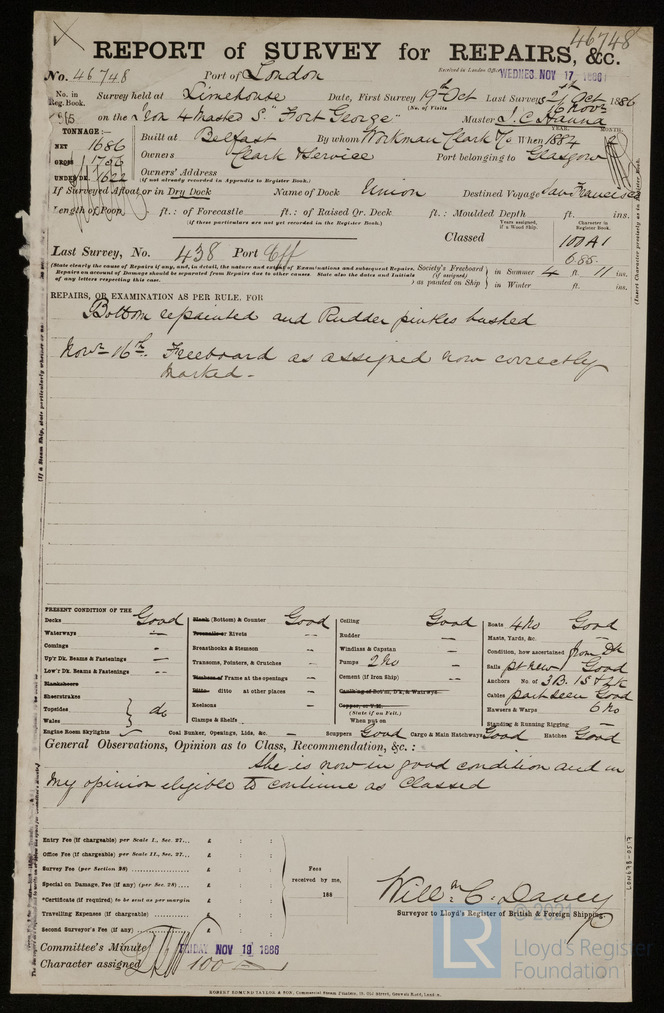 46748
REPORT of SURVEY for REPAIRS, &c.
No. 46748 Port of London Received in London Office WEDNES. NOV 17 1886
No. in Reg. Book. Survey held at Limehouse Date, First Survey 19th Oct Last Survey 21st Oct 1886
(No. of Visits) 16 Novr
on the Iron 4 Masted S. "Fort George" Master J. C. Hanna
TONNAGE:— YEAR. MONTH.
NET 1686 Built at Belfast By whom Workman Clark & Co When 1884
GROSS Owners Clark & Service Port belonging to Glasgow
UNDER DK. 1622 Owners' Address
(if not already recorded in Appendix to Register Book.)
If Surveyed Afloat or in Dry Dock Name of Dock Union Destined Voyage San Francisco
Length of Poop ft.: of Forecastle ft.: of Raised Qr. Deck ft.: Moulded Depth ft. ins.
(if these particulars are not yet recorded in the Register Book.) Years assigned, if a Wood Ship. Character in Register Book.
Classed 100 A1
6.85
Last Survey, No. 438 Port Cff
(State clearly the cause of Repairs if any, and, in detail, the nature and extent of Examinations and subsequent Repairs. Society's Freeboard in Summer 4 ft. 11 ins.
Repairs on account of Damage should be separated from Repairs due to other causes. State also the dates and Initials (if assigned)
of any letters respecting this case. as painted on Ship in Winter ft. ins.
REPAIRS, OR EXAMINATION AS PER RULE. FOR
Bottom repainted and Rudder pintles bushed
Novr 16th. Freeboard as assigned now correctly
marked.—
PRESENT CONDITION OF THE
Decks Good Plank (Bottom) & Counter Good Ceiling Good Boats 4 No Good
Waterways — Treenails or Rivets — Rudder — Masts, Yards, &c. —
Comings — Breasthooks & Stemson — Windlass & Capstan — Condition, how ascertained from Dk
Up'r Dk. Beams & Fastenings — Transoms, Pointers, & Crutches — Pumps 2 No Sails pt new Good
Low'r Dk. Beams & Fastenings — Timbers of Frame at the openings — Cement (if Iron Ship) — Anchors No. of 3 B. 1 S & 2 K
Planksheers Ditto ditto at other places — Caulking of Bot'm, D'k, & Waterways Cables part seen Good
Sheerstrakes Keelsons — Copper, or Y.M. Hawsers & Warps 6 No
Topsides do (State if on Felt.)
Wales Clamps & Shelfs When put on Standing & Running Rigging —
Engine Room Skylights Coal Bunker, Openings, Lids, &c. — Scuppers Good Cargo & Main Hatchways Good Hatches Good
General Observations, Opinion as to Class, Recommendation, &c.:
She is now in good condition and in
my opinion eligible to continue as Classed
Entry Fee (if chargeable) per Scale I., Sec. 27... £ : :
Office Fee (if chargeable) per Scale II., Sec. 27... £ : :
Survey Fee (per Section 28) £ : : Fees
Special on Damage, Fee (if any) (per Sec. 28) £ : : received by me,
*Certificate (if required) to be sent as per margin £ : : 188
Travelling Expenses (if chargeable) £ : : Willm C. Davey
Second Surveyor's Fee (if any) £ : : Surveyor to Lloyd's Register of British & Foreign Shipping.
Committee's Minute FRIDAY NOV 19 1886
Character assigned 100
LON678-0157
© 2021
LR
Lloyd's Register
Foundation